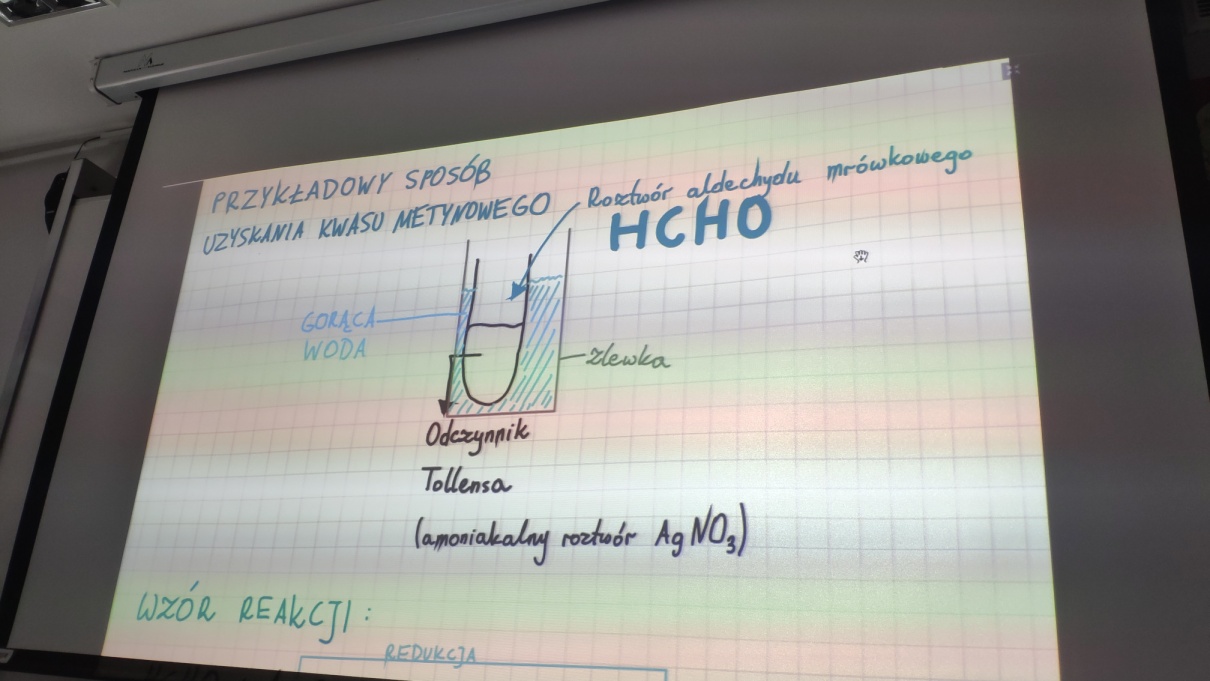 PRZYKŁADOWY SPOSÓB
UZYSKANIA KWASU METYNOWEGO
Rostwór aldechydu mrówkowego
HCHO
GORĄCA
WODA
zlewka
Odczynnik
Tollensa
(amoniakalny roztwór AgNO₃)
WZÓR REAKCJI:
REDUKCJA